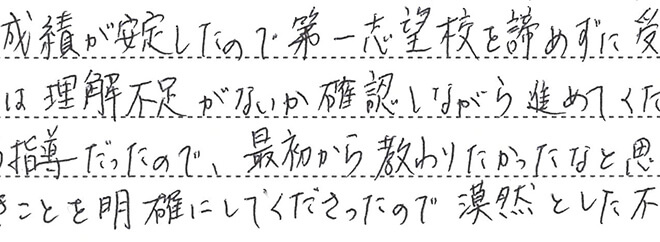 成績が安定したので第一志望校を諦めずに受
は理解不足がないか確認しながら進めてくだ
の指導だったので、最初から教わりたかったなと思
きことを明確にしてくださったので漠然とした不